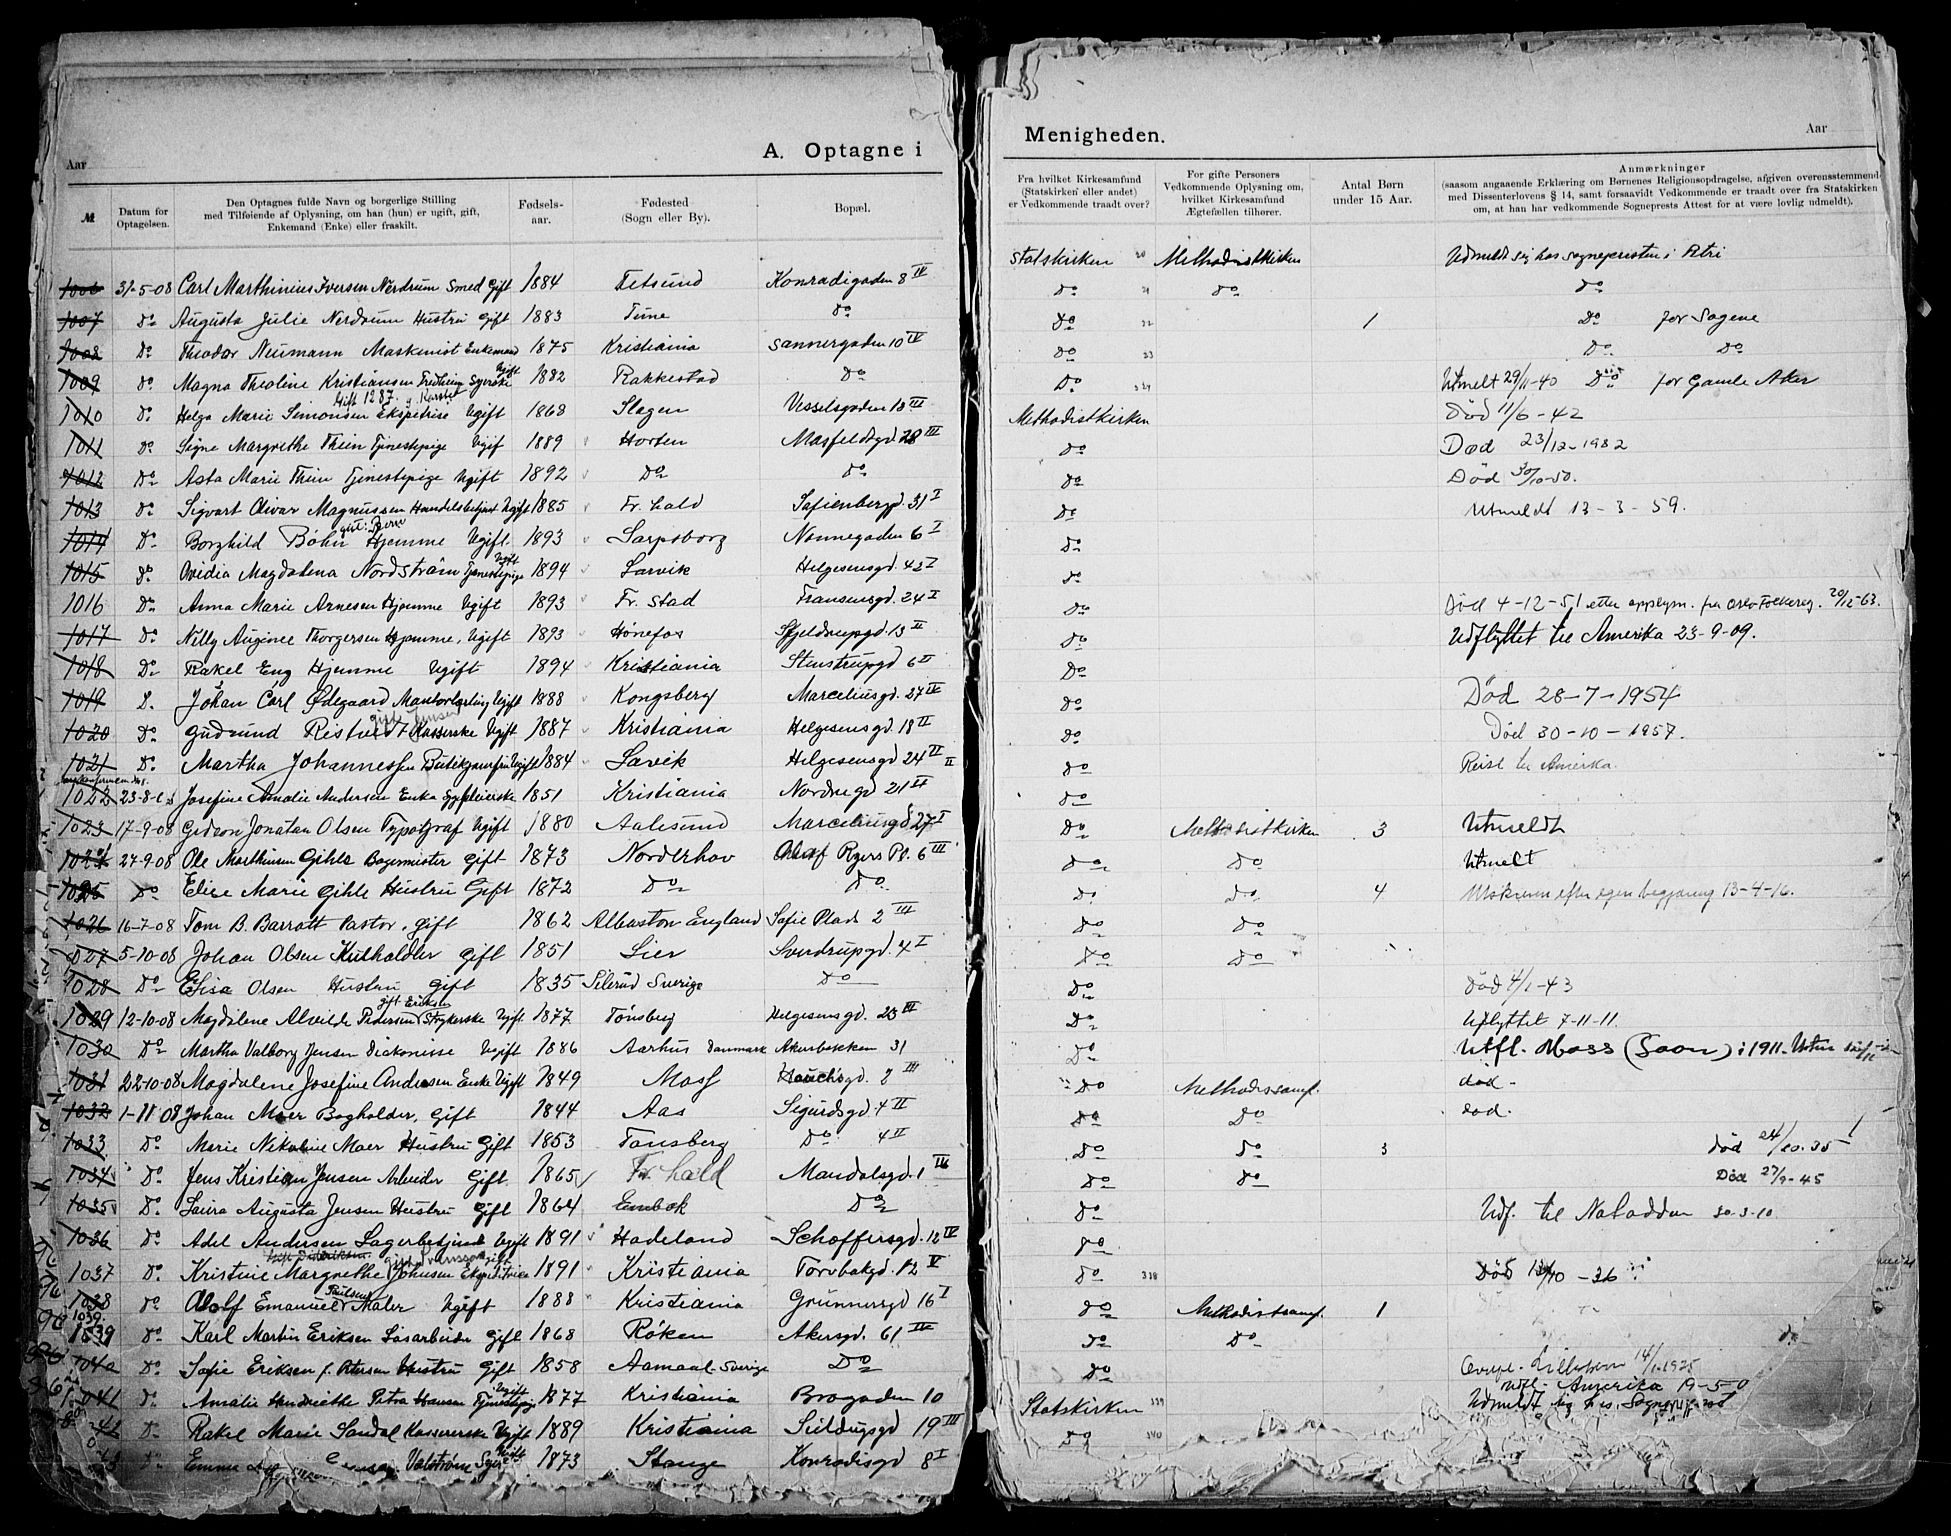 A. Optagne i
Menigheden.
Aar
Aar
№
Datum for Optagelsen.
Den Optagnes fulde Navn og borgerlige Stilling
med Tilføiende af Oplysning, om han (hun) er ugift, gift,
Enkemand (Enke) eller fraskilt.
Fødsels-
aar.
Fødested
(Sogn eller By).
Bopæl.
Fra hvilket Kirkesamfund
(Statskirken eller andet)
er Vedkommende traadt over?
For gifte Personers
Vedkommende Oplysning om,
hvilket Kirkesamfund
Ægtefællen tilhører.
Antal Børn
under 15 Aar.
Anmærkninger
(saasom angaaende Erklæring om Børnenes Religionsopdragelse, afgiven overensstemmend
med Dissenterlovens § 14, samt forsaavidt Vedkommende er traadt over fra Statskirken
om, at han har vedkommende Sogneprests Attest for at være lovlig udmeldt).
1006 31-5-08 Carl Marthinius Iversen Nerdrum Smed Gift 1884 Fetsund Konradigaden 8 IV
1007 Do Augusta Julie Nerdrum Hustru Gift 1883 Tune Do
1008 Do Theodor Neumann Maskinist Enkemand 1875 Kristiania Sannergaden 10 IV
1009 Do Magna Theoline Kristiansen Fredheim Syerske Ugift 1882 Rakkestad Do
1010 Do Helga Marie Simonsen Ekspetrise Ugift 1868 Slagen Vesselsgaden 13 III
1011 Do Signe Margrethe Thein Tjenestepige Ugif 1889 Horten Masfeldtsgd 28 III
1012 Do Asta Marie Thein Tjenestepige Ugift 1892 Do Do
1013 Do Sigvart Olivar Magnussen Handelsbetjent Ugift 1885 Fr. hald Sofienbergd. 31 I
1014 Do Borghild Bøhn Hjemme Ugift. 1893 Sarpsborg Nonnegaden 6 I
1015 Do Ovidia Magdalena Nordstrøm Tjenestepige Ugift 1894 Larvik Helgesensgd. 42 I
1016 Do Anna Marie Arnesen Hjemme Ugift 1893 Fr. stad Fransensgd. 24 I
1017 Do Nelly Auginee Thorgersen Hjemme, Ugift 1893 Hønefos 13 II
1018 Do Rakel Eng Hjemme Ugift 1894 Kristiania Stenstrupgd 6 II
1019 D. Johan Carl Ødegaard Ugift 1888 Kongsberg Marceliusgd. 27 IV
1020 Do Gudrund Ristvedt Kasserske Ugift 1887 Kristiania Helgesensgd. 18 II
1021 Do Martha Johannessen Ugift 1884 Larvik Helgesensgd 24 II
1022 23-8- Josefine Amalie Andersen Enke Sygepleierske 1851 Kristiania Nordregd 21 II
1023 17-9-08 Gideon Jonatan Olsen Typograf Ugift 1880 Aalesund Marceliusgd 27 I
1024 27-9-08 Ole Marthinsen Gihle Bagemester Gift 1873 Norderhov Olaf Ryers Pl. 6 III
1025 Do Elise Marie Gihle Hustru Gift 1872 Do Do
1026 16-7-08 Tom B. Barratt Pastor. Gift 1862 Albaston England Sofie Plads 2 III
1027 5-10-08 Johan Olsen Kulhandler Gift 1851 Lier Sverdrupgd. 4 I
1028 Do Elisa Olsen Hustru Gift 1835 Silerud Sverige Do
gift Eriksen
1029 12-10-08 Magdalene Alvilde Pedersen Strykerske Ugift 1877 Tønsberg Helgesensgd. 23 III
1030 Do Martha Valborg Jensen Diakonisse Ugift 1886 Aarhus Danmark Akersbakken 31
1031 22-10-08 Magdalene Josefine Andresen Enke Ugift 1849 Moss Hauchsgd. 3 III
1032 1-11 08 Johan Moer Bogholder, Gift 1844 Aas Sigurdsgd 4 II
1033 Do Marie Nikoline Moer Hustru Gift 1853 Tønsberg Do 4 II
1034 Do Jens Kristian Jensen Arbeider Gift 1865 Fr. hald Mandalsgd. 1 IV
1035 Do Laura Augusta Jensen Hustru Gift 1864 Enebak Do
1036 Do Adel Andersen Lagerbetjent Ugift 1891 Hadeland Schoffersgd. 12 IV
1037 Do Kristine Margrethe Johnsen Ekspeditrice 1891 Kristiania Torvbakgd. 12 V
1038 Do Adolf Emanuel Paulsen Maler Ugift 1888 Kristiania Grünnersgd 16 I
1039 Do Karl Martin Eriksen Løsarbeider Gift 1868 Røken Akersgd. 61 IV
1040 Do Sofie Eriksen f. Petersen Hustru Gift 1858 Aamaal-Sverige Do
1041 Do Amalie Hendriette Petra Hansen Tjenestepige Ugift 1877 Kristiania Brogaden 10
42 Do Rakel Marie Sandal Kassererske Ugift 1889 Kristiania Sildugsgd 19 III
43 Do Emma Valstrøm Ugift 1873 Stange Konradisgd 8 I
Statskirken Methodistkirken Udmeldt sig hos sognepresten i Petri
Do Do Do
Do 1 Do for Sagene
Do Do Do
Do Utmelt 29/11-40 Do for Gamle Aker
Methodistkirken Død 11/6-42
Do Død 23/12-1982
Do Død 30/10-50.
Do Utmeldt 13-3-59.
Do
Do
Do Død 4-12-51 etter opplysn. fra Oslo Folkereg. 20/12-63.
Do Udflyttet til Amerika 23-9-09.
Do
Do Død 28-7-1954
Do Død 30-10-1957.
Do Reist til Amerika.
Do
Do Methodistkirken 3 Utmeldt
Do Do Utmelt
Do Do 4 Utskreven efter egen begjæring 13-4-16.
Do Do
Do Do
Do Død 4/1-43
Do Uflyttet 7-11-11.
Do Utfl. Moss (Soon) i 1911.
Do Methodissamf. død-
Do Do død.
Do Do 3 død 24/10.35
Do Do Død 27/9-45
Do Udf. til Notodden 30-3-10
Do
Do 338 Død 10-36
Do Methodistsamf. 1
Do Do
Do Lillestrøm 14/1-1925
Utfl. Amerika 19-5-0
Statskirken 339 Udmeldt sig hos Sogneprest
Do 340